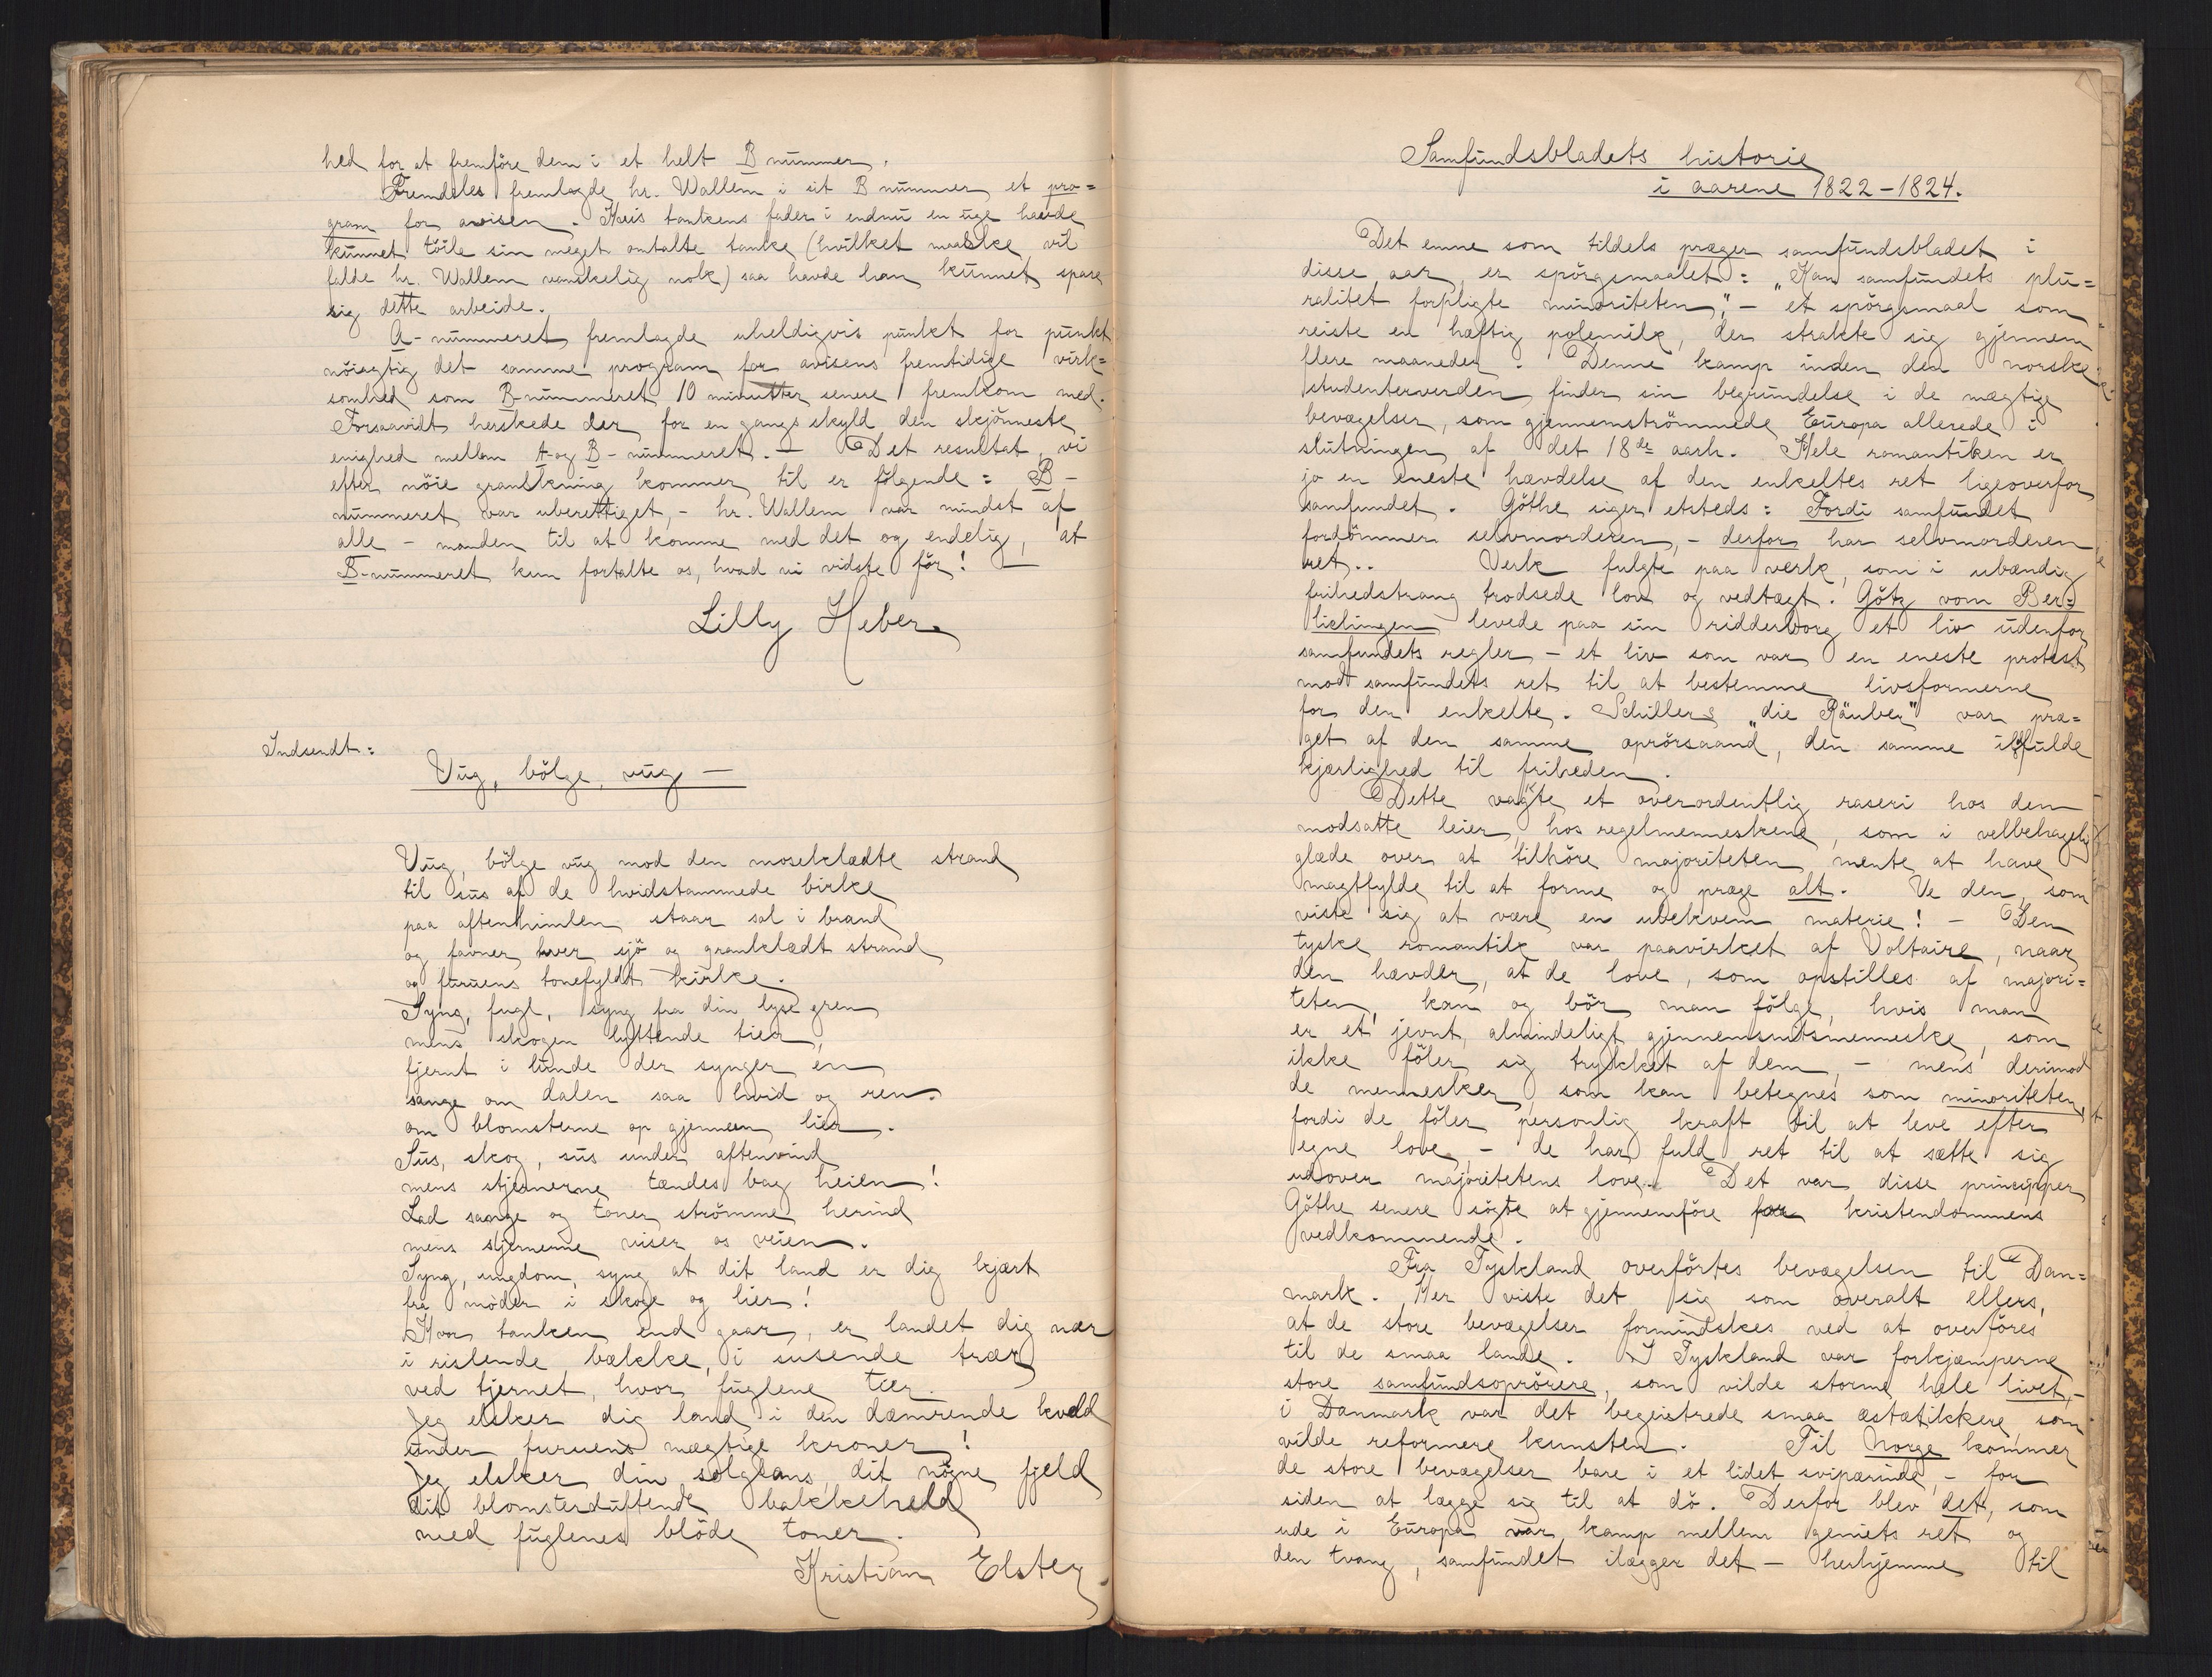 hed for at fremföre dem i et helt B nummer.
Fremdeles fremlagde hr. Wallem i sit B nummer et pro=
gram for avisen. Hvis tankens fader i endnu en uge havde
kunnet töile sin meget omtalte tanke (hvilket maaske vil
falde hr. Wallem vanskelig nok) saa havde han kunnet spare
sig dette arbeide.
A-nummeret fremlagde uheldigvis punkt for punkt
nöiagtig det samme program for avisens fremtidige virk=
somhed som B-nummeret 10 minutter senere fremkom med.
Forsaavidt herskede der for en gangs skyld den skjönneste
enighed mellem A- og B-nummeret. — Det resultat, vi
efter nöie granskning kommer til er fölgende: B-
nummeret var uberettiget, - hr. Wallem var mindst af
alle - manden til at komme med det og endelig, at
B-nummeret kun fortalte os, hvad vi vidste för! —
Lilly Heber.
Indsendt:
Vug, bölge, vug —
Vug, bölge vug mod den moseklædte strand
til sus af de hvidstammede birke
paa aftenhimlen staar sol i brand
og favner hver sjö og granklædt strand
og furuens tonefyldt kirke.
Syng, fugl, syng fra din lyse gren
mens skogen lyttende tier,
fjernt i lunde der synger en
sange om dalen saa hvid og ren.
om blomsterne op gjennem lier.
Sus, skog, sus under aftenvind
mens stjernerne tændes bag heien!
Lad sange og toner strömme herind
mens stjernerne viser os veien.
Syng, ungdom, syng at dit land er dig kjært
fra möder i skoge og lier!
Hvor tanken end gaar, er landet dig nær
i rislende bække, i susende trær
ved tjernet, hvor fuglene tier.
Jeg elsker dig land i den dæmrende kveld
under furuens mægtige kroner!
Jeg elsker din solglans, dit nögne fjeld
dit blomsterduftende bakkeheld
med fuglenes blöde toner.
Kristian Elster.
Samfundsbladets historie
i aarene 1822-1824.
Det emne som tildels præger samfundsbladet i
disse aar er spörgsmaalet: "Kan samfundets plu=
ralitet forpligte minoriteten", - et spörgsmaal som
reiste en hæftig polemik, der strakte sig gjennem
flere maaneder. Denne kamp inden den norske
studenterverden finder sin begrundelse i de mægtige
bevægelser, som gjennemströmmede Europa allerede i
slutningen af det 18de aarh. Hele romantiken er
jo en eneste hævdelse af den enkeltes ret ligeoverfor
samfundet. Göthe siger etsteds: Fordi samfundet
fordömmer selvmorderen, - derfor har selvmorderen
ret.. Verk fulgte paa verk, som i ubændig
frihedstrang trodsede lov og vedtægt. Götz vom Ber=
lichingen levede paa sin ridderborg et liv udenfor
samfundets regler - et liv som var en eneste protest
mod samfundets ret til at bestemme livsformerne
for den enkelte. Schillers "die Räuber" var præ=
get af den samme oprörsaand, den samme ildfulde
kjærlighed til friheden.
Dette vagte et overordentlig raseri hos den
modsatte leier, hos regelmenneskene, som i velbehagelig
glæde over at tilhöre majoriteten mente at have
magtfylde til at forme og præge alt. Ve den, som
viste sig at være en ubekvem materie! - Den
tyske romantik var paavirket af Voltaire, naar
den hævder, at de love, som opstilles af majori=
teten, kan og bör man fölge, hvis man
er et jevnt, almindeligt gjennemsnitsmenneske, som
ikke föler sig trykket af dem, - mens derimod
de mennesker, som kan betegnes som minoriteten,
fordi de föler personlig kraft til at leve efter
egne love, - de har fuld ret til at sætte sig
udover majoritetens love. Det var disse principper
Göthe senere sögte at gjennemföre for kristendommens
vedkommende.
Fra Tyskland overförtes bevægelsen til Dan=
mark. Her viste det sig som overalt ellers,
at de store bevægelser formindskes ved at overföres
til de smaa lande. I Tyskland var forkjæmperne
store samfundsoprörere, som vilde storme hele livet,-
i Danmark var det begeistrede smaa æstætikkere som
vilde reformere kunsten. Til Norge kommer
de store bevægelser bare i et lidet svipærinde, - for
siden at lægge sig til at dö. Derfor blev det, som
ude i Europa var kamp mellem geniets ret og
den tvang, samfundet ilægger det - herhjemme til